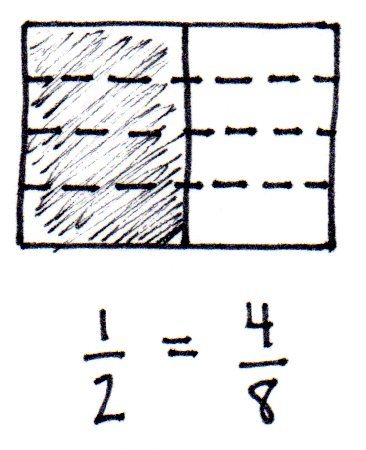 1/2 = 4/8